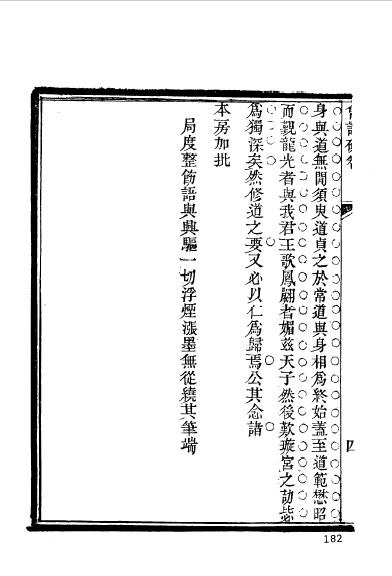 身與道無間須臾道貞之於常道與身相為終始蓋至道範懋昭
而覲龍光者與我君王歌鳳翽者媚茲天子然後歎璇宮之劼毖
為獨深矣然修道之要又必以仁為歸焉公其念諸
本房加批
局度整飭語與興驅一切浮煙漲墨無從繞其筆端
四
182